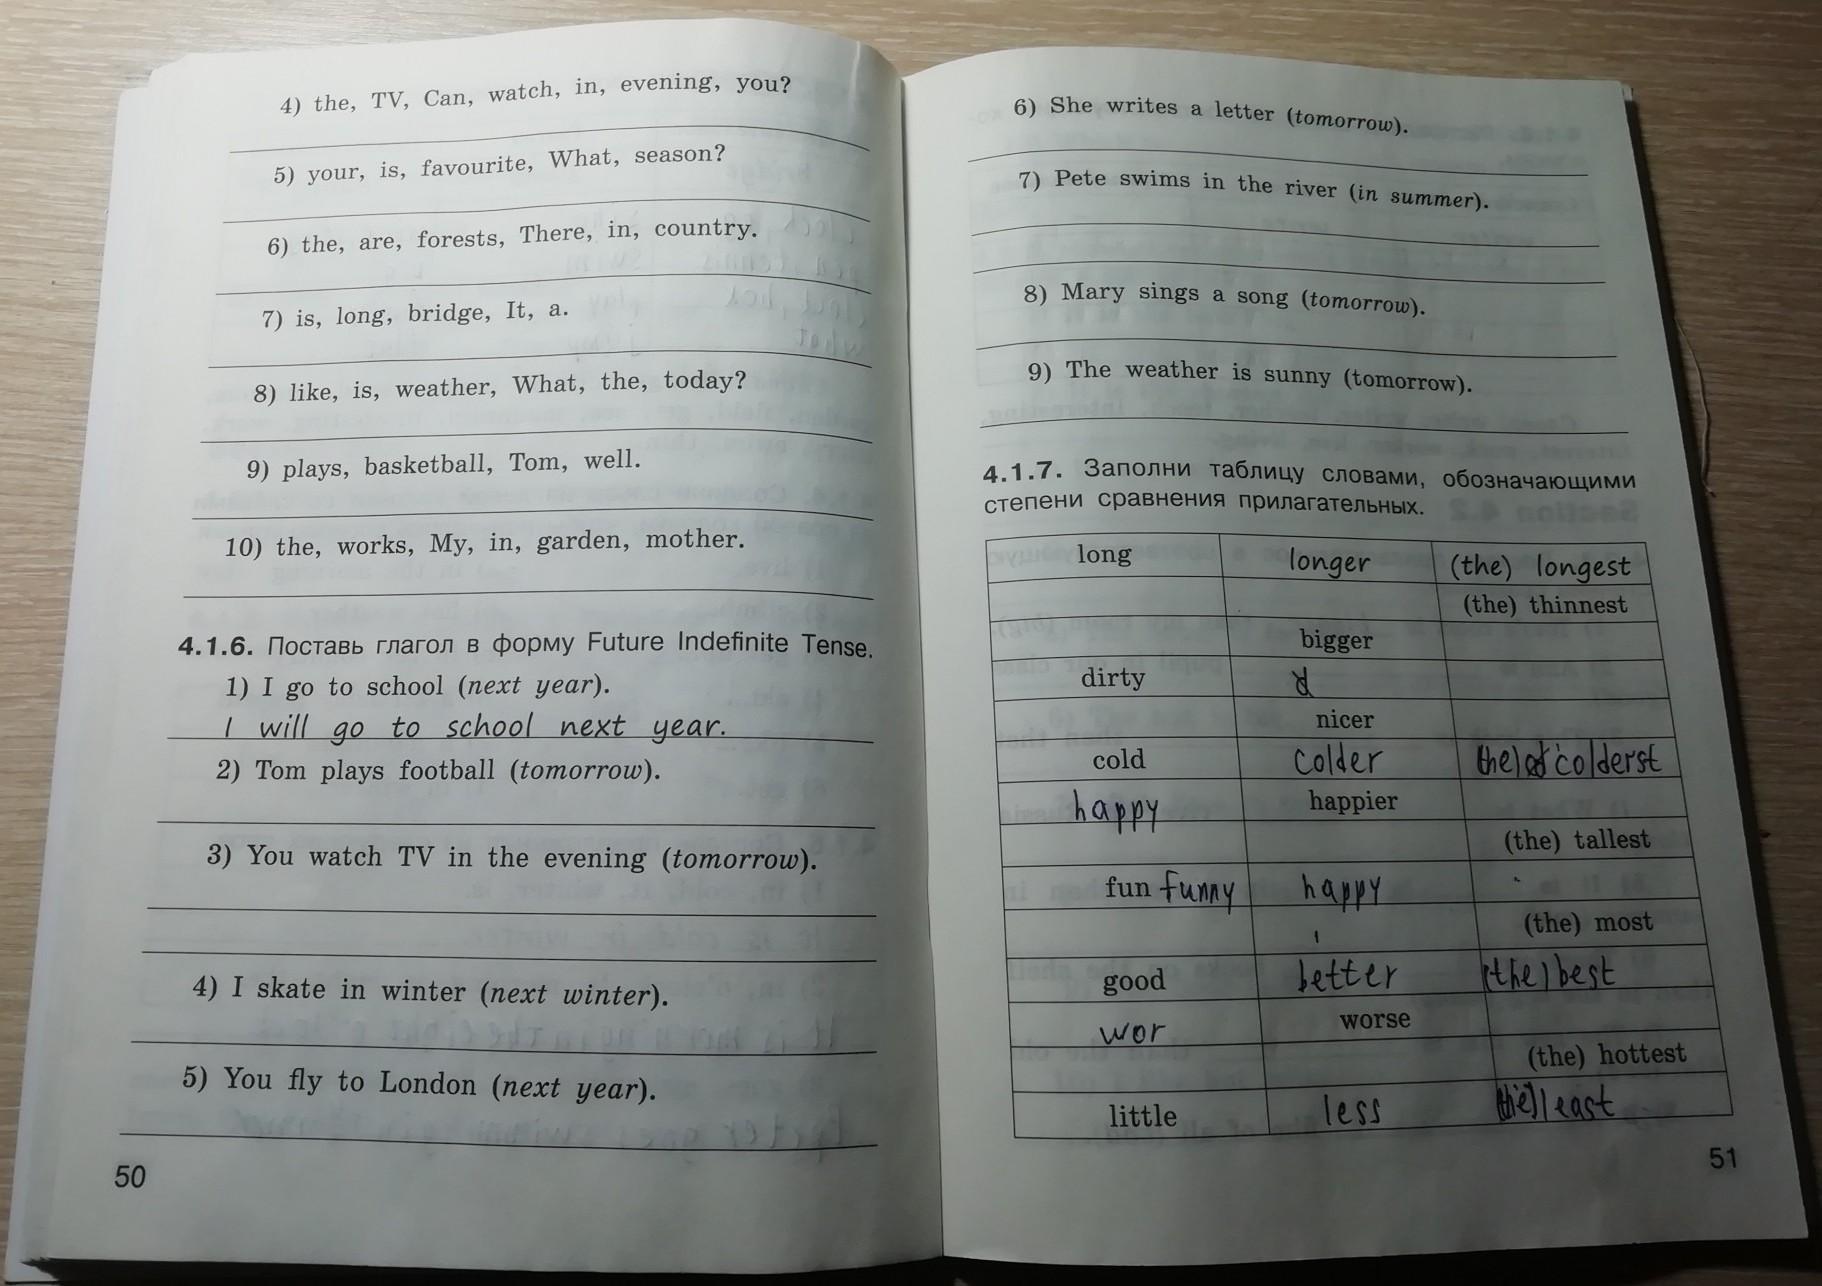 4) the, TV, Can, watch, in, evening, you?
5) your, is, favourite, What, season?
6) the, are, forests, There, in, country.
7) is, long, bridge, It, a.
8) like, is, weather, What, the, today?
9) plays, basketball, Tom, well.
10) the, works, My, in, garden, mother.
4.1.6. Поставь глагол в форму Future Indefinite Tense.
1) I go to school (next year).
I will go to school next year.
2) Tom plays football (tomorrow).
3) You watch TV in the evening (tomorrow).
4) I skate in winter (next winter).
5) You fly to London (next year).
50
6) She writes a letter (tomorrow).
7) Pete swims in the river (in summer).
8) Mary sings a song (tomorrow).
9) The weather is sunny (tomorrow).
4.1.7. Заполни таблицу словами, обозначающими
степени сравнения прилагательных.
long longer (the) longest
(the) thinnest
bigger
dirty d
nicer
cold colder the) colderst
happy happier
(the) tallest
fun funny happy
(the) most
good better (the) best
wor worse
(the) hottest
little less (the) least
51